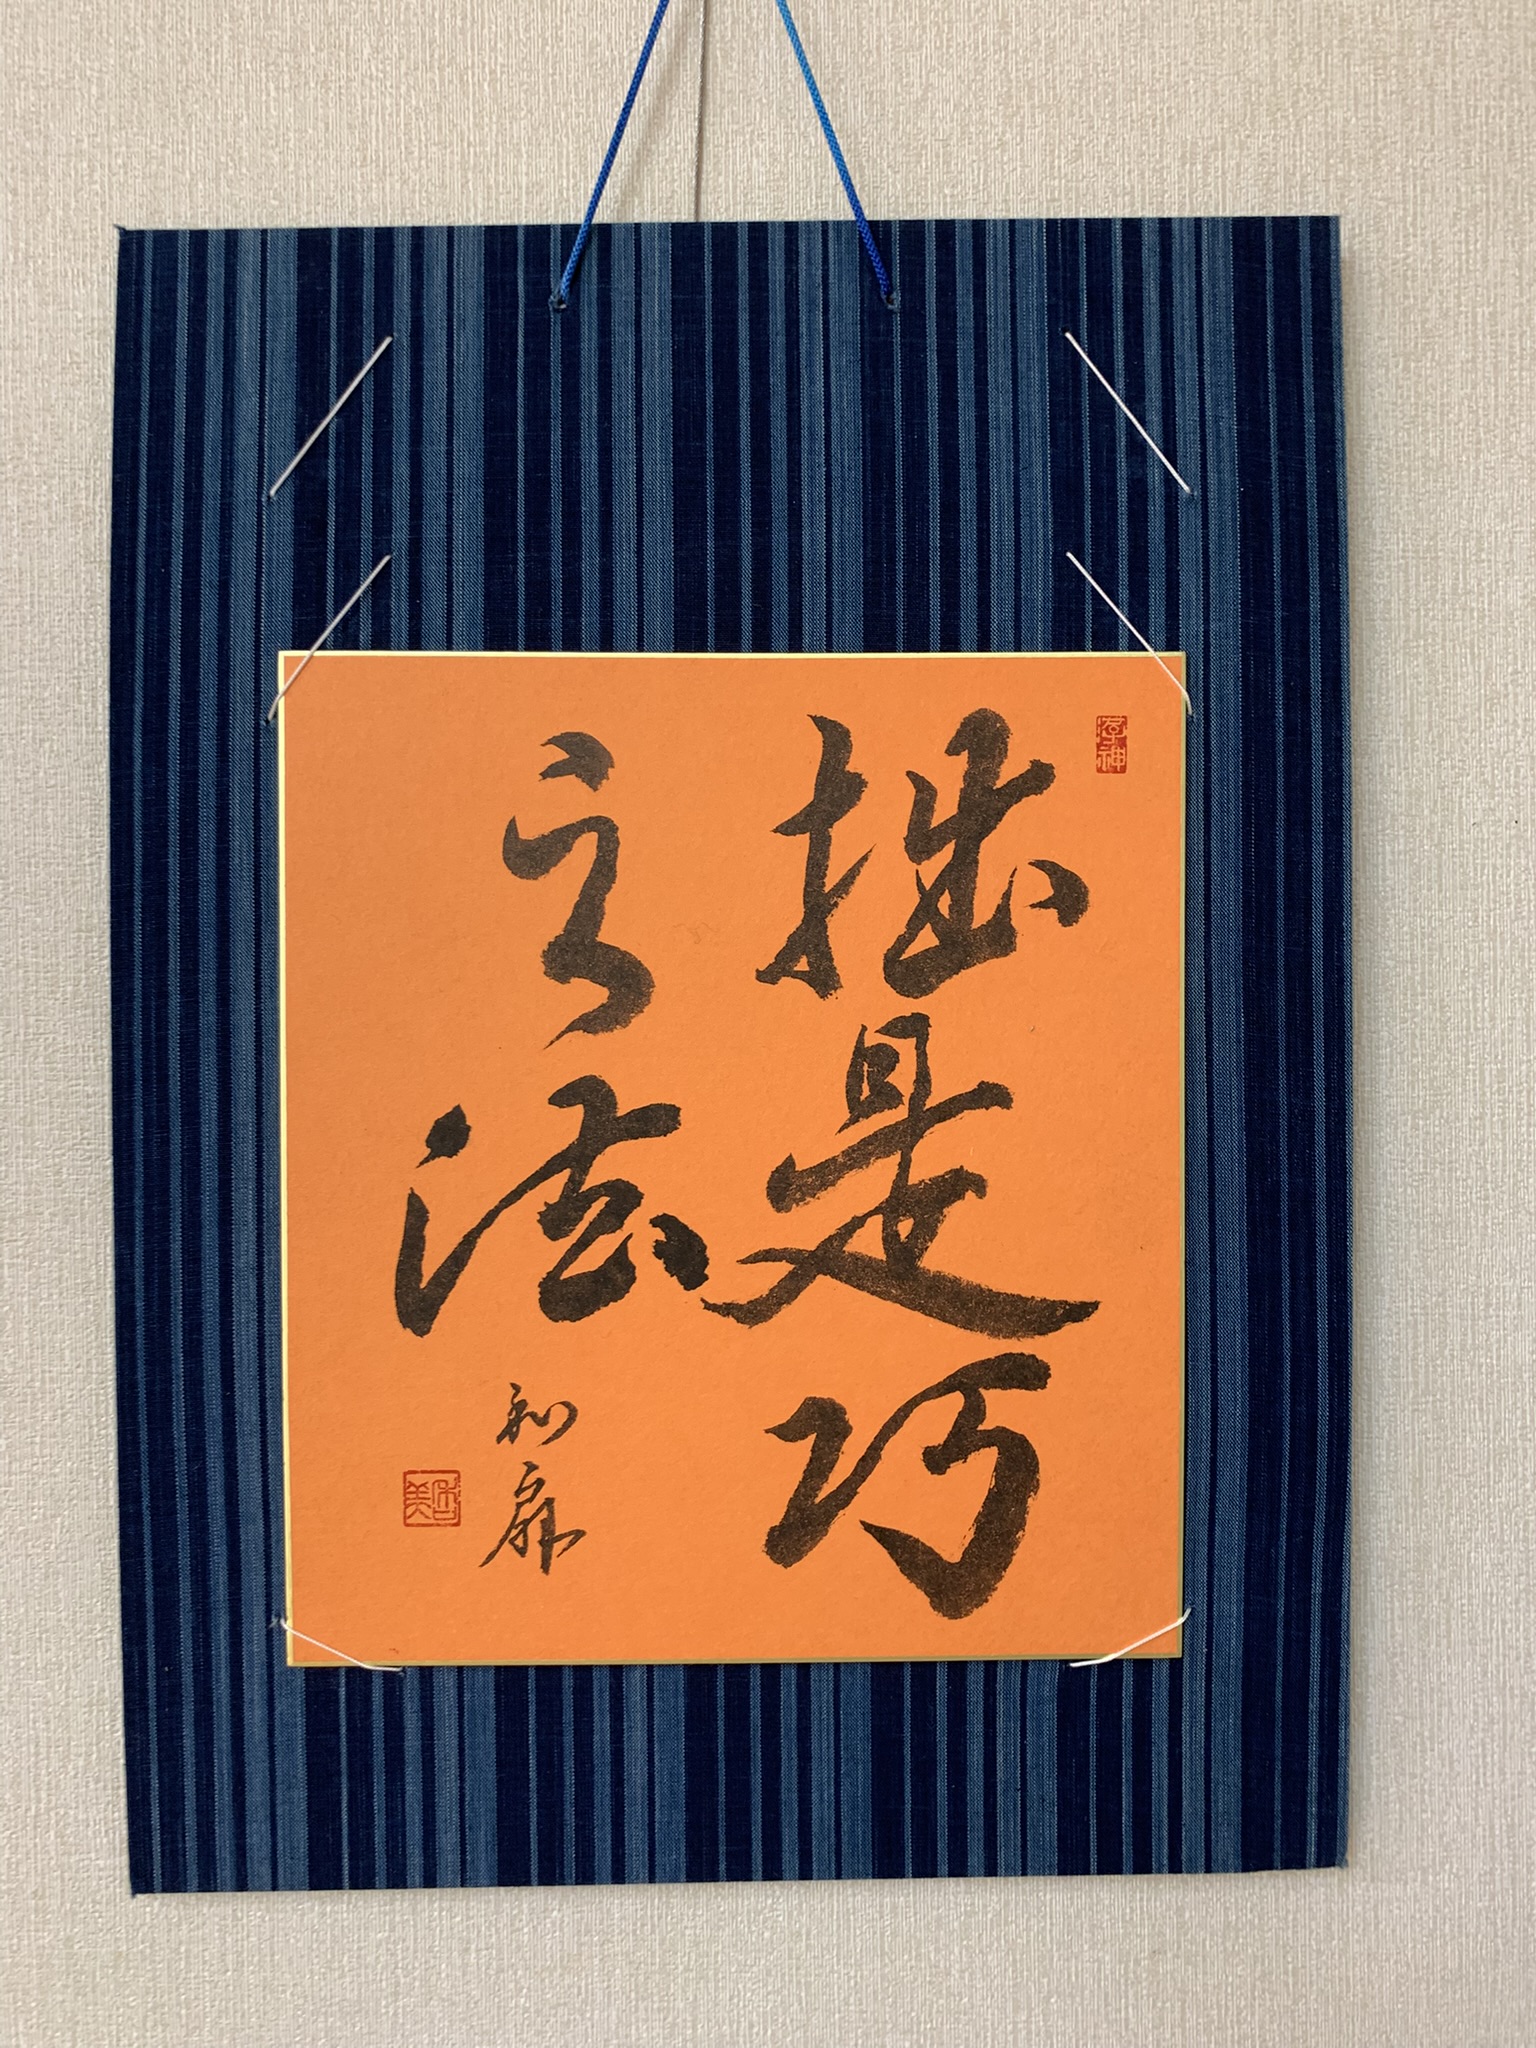 拙是巧
之法
和扇